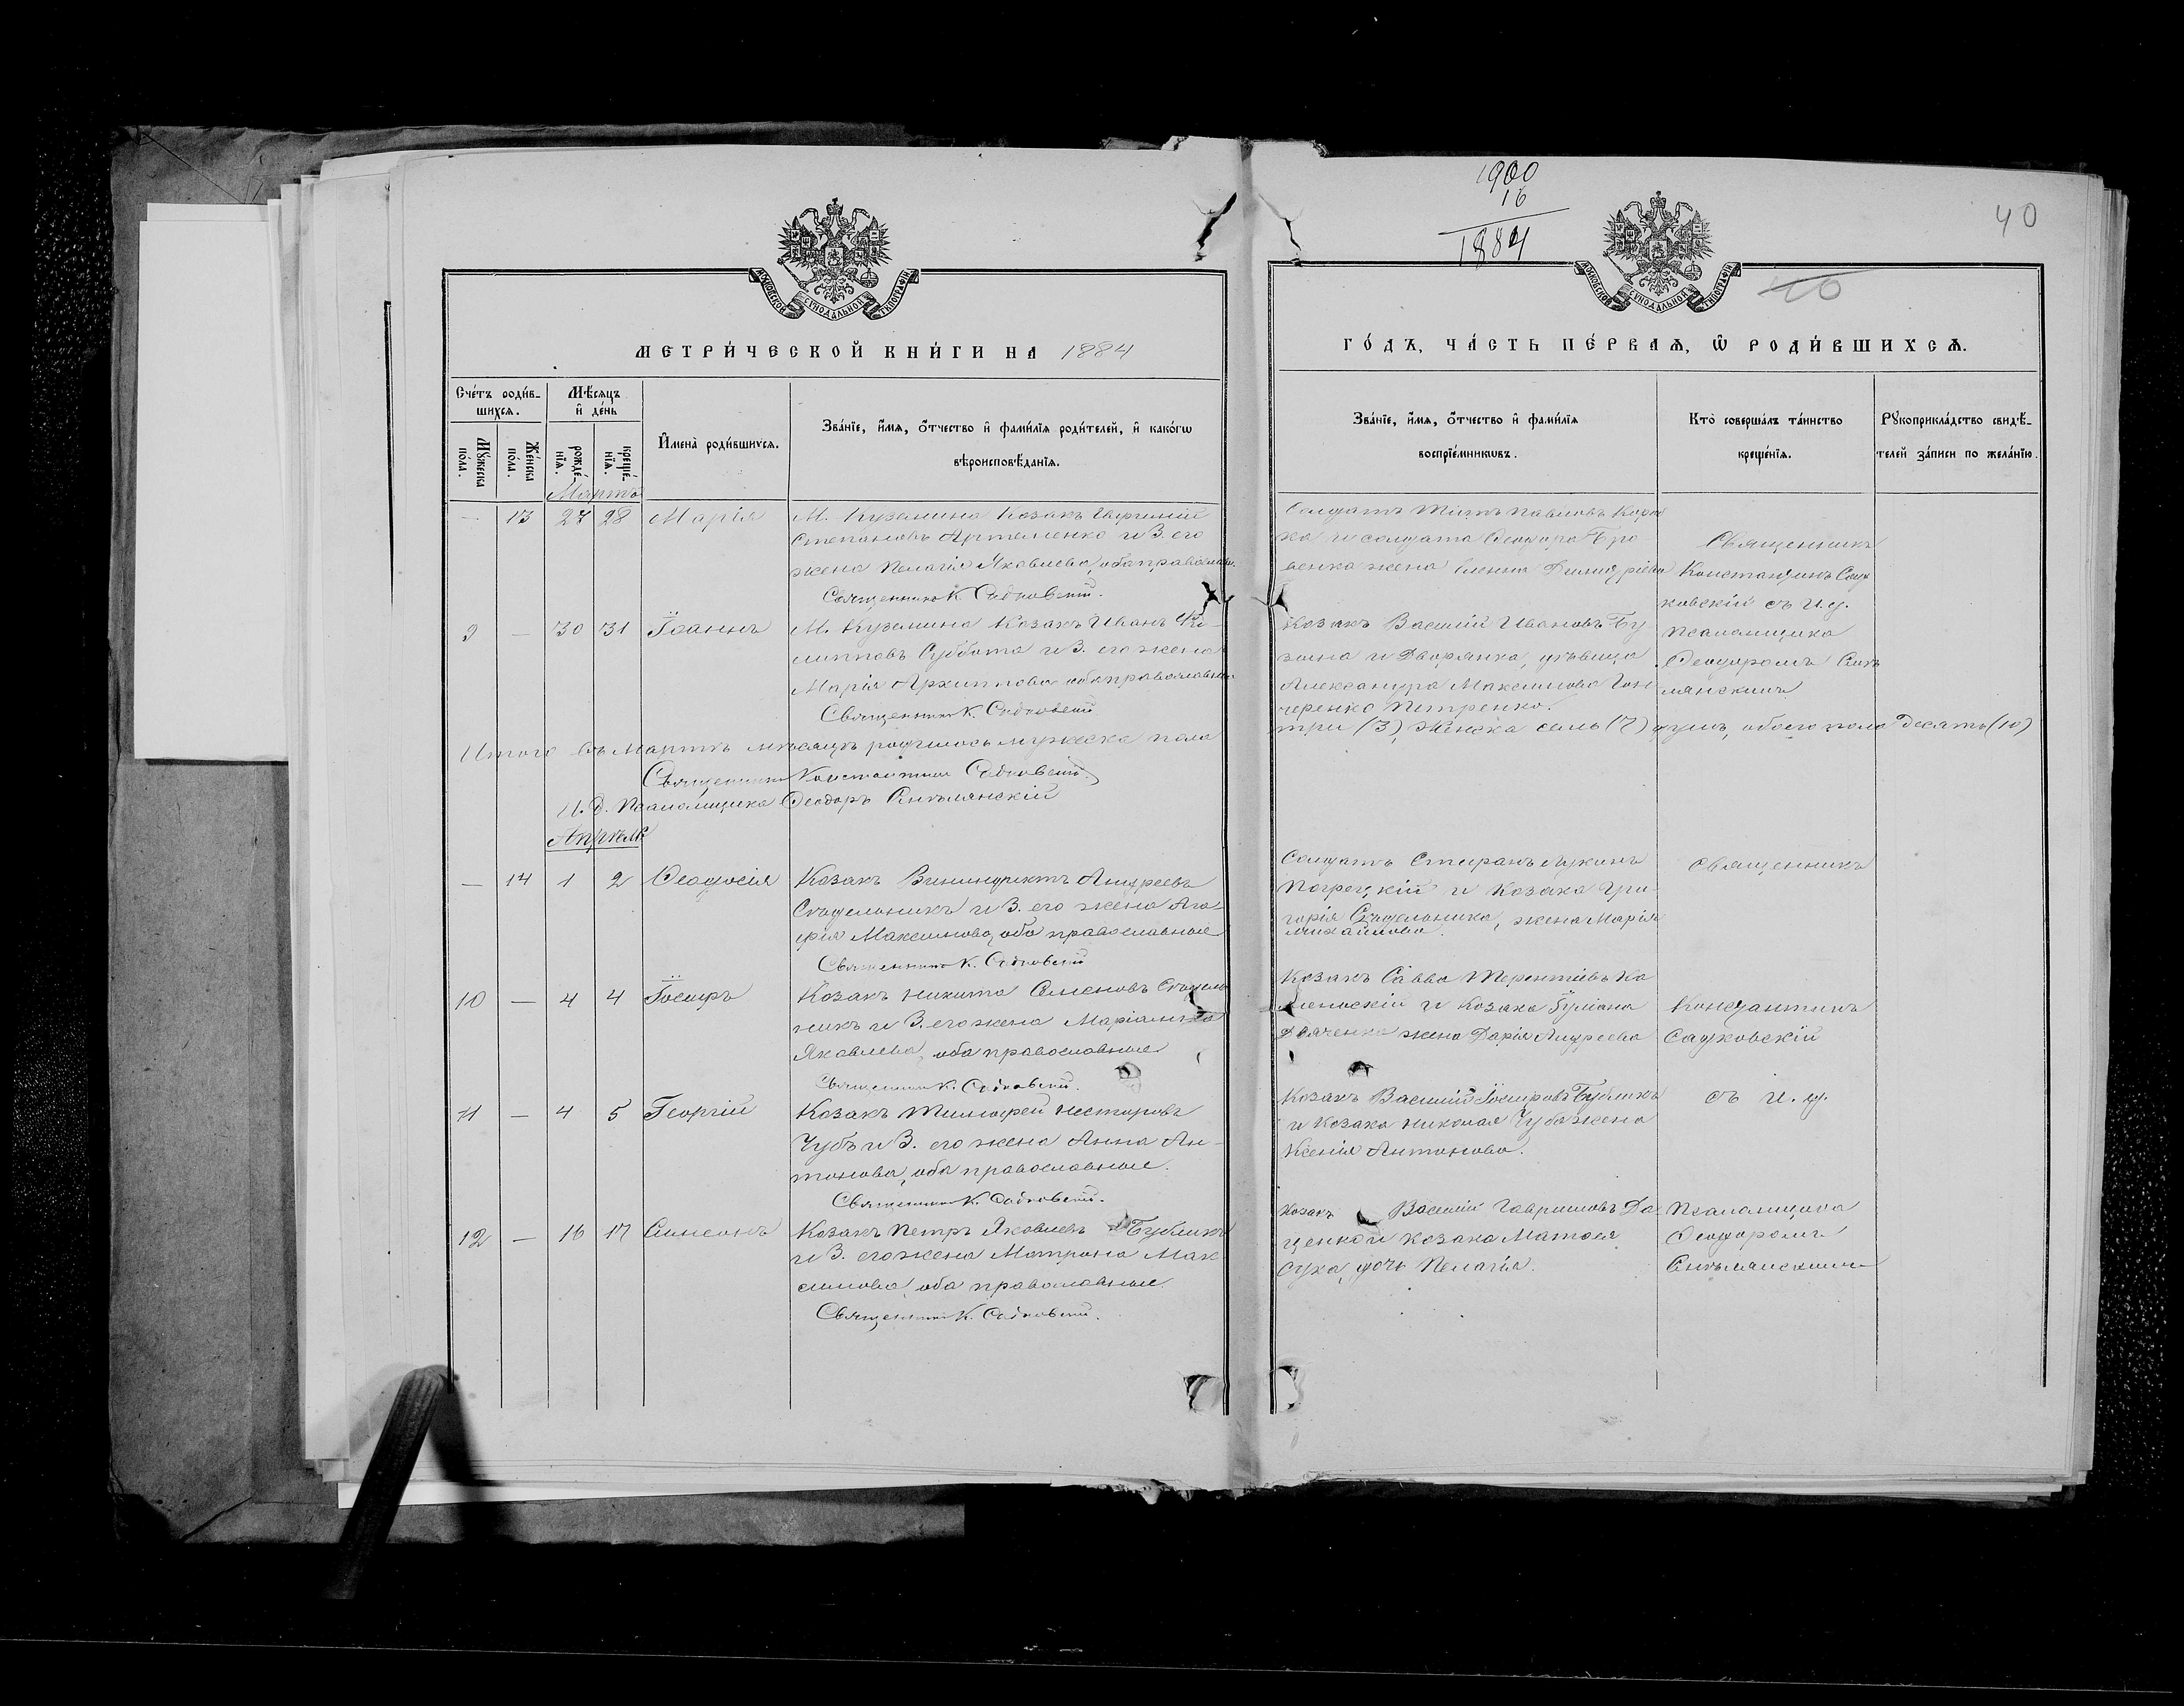 1900
16
1884
40
40
МОСКОВСКОЙ СѴНОДАЛЬНОЙ ТИПОГРАФІИ
МОСКОВСКОЙ СѴНОДАЛЬНОЙ ТИПОГРАФІИ
МЕТРИ́ЧЕСКОЙ КНИ́ГИ НА 1884
ГО́ДЪ, ЧА́СТЬ ПЕ́РВАѦ, Ѿ РОДИ́ВШИХСѦ.
Сче́тъ роди́в-
шихся.
Мѣ́сяцъ
и҆ де́нь
Мꙋ́жеска
по́ла.
Же́нска
по́ла.
рожде́-
нїя.
креще́-
нїя.
И҆мена̀ роди́вшихся.
Зва́нїе, и҆́мя, ѻ҆́тчество и҆ фами́лїя роди́телей, и҆ како́гѡ
вѣроисповѣ́данїя.
Зва́нїе, и҆́мя, ѻ҆́тчество и҆ фами́лїя
воспрїе́мникѡвъ.
Кто̀ соверша́лъ та́инство
креще́нїя.
Рꙋкоприкла́дство свидѣ́-
телей за́писи по жела́нїю.
Мартъ
— 13 27 28 Марія
М. Куземина Козакъ
Степановъ Артеменко и З. его
жена Пелагія Яковлева, оба православн.
Священникъ К. Садковский.
Солдатъ Титъ Павловъ
ка и солдата Ѳеодора Бро-
венка жена Елена Димитріева
Священникъ
Константинъ Сад
ковскій съ И. д.
9 — 30 31 Іоаннъ
М. Куземина Козакъ Иванъ Фи-
липповъ Суббота и З. его жена
Марія Архиппова оба православн
Священникъ К. Садковский
Козакъ Василій Ивановъ Бу-
зина и Дворянка, дѣвица
Александра Максимова Гон
черенко Петренко.
Псаломщика
Ѳеодоромъ Синь
лянскимъ
Итого въ Мартѣ мѣсяцѣ родилось мужеска пола
три (3), женска семь (7) душъ, обоего пола десять (10)
Священникъ Константинъ Садковскій
И. д. Псаломщика Ѳеодоръ Синьлянскій
Апрѣль
— 14 1 2 Ѳеодосія
Козакъ Андреевъ
и З. его жена Ага-
фія Максимова, оба православные
Священникъ К. Садковский
Солдатъ Стефанъ Лукинъ
Погрецкій и Козака Гри-
горія жена Марія
Михайлова.
Священникъ
10 — 4 4 Іосифъ
Козакъ Никита Семеновъ
никъ и З. его жена Маріамна
Яковлева, оба православные
Священникъ К. Садковский.
Козакъ Савва Терентіевъ Ка
менскій и Козака Іуліана
жена Дарія Андреева
Константинъ
Садковскій
11 — 4 5 Георгій
Козакъ Тимофей Несторовъ
Чубъ и З. его жена Анна Ан-
тонова, оба православные.
Священникъ К. Садковский.
Козакъ Василій Іосифовъ Бубликъ
и Козака Николая Чуба жена
Ксенія Антонова.
съ И. д.
12 — 16 17 Симеонъ
Козакъ Петръ Яковлевъ Бубликъ
и З. его жена Матрона Мак
симова, оба православные.
Священникъ К. Садковский.
Козакъ Василій Гавриловъ Да-
ценко и Козака Матѳея
Сука, дочь Пелагія.
Псаломщика
Ѳеодоромъ
Синьлянскимъ